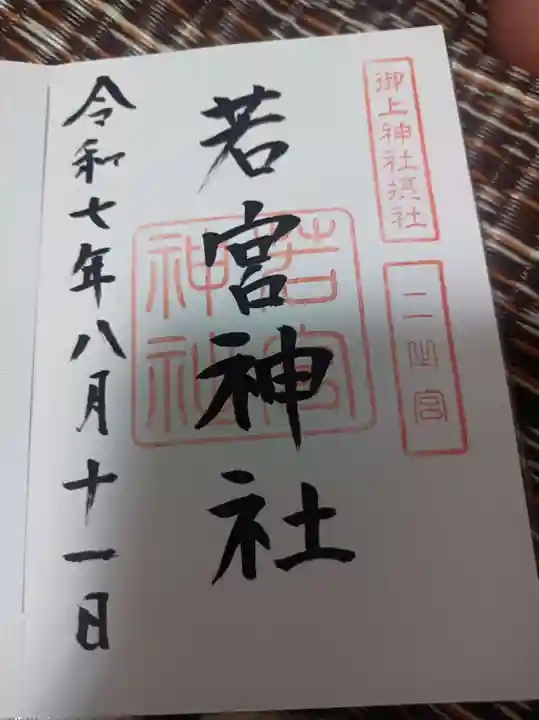 御上神社摂社
二之宮
若宮神社
若宮
神社
令和七年八月十一日